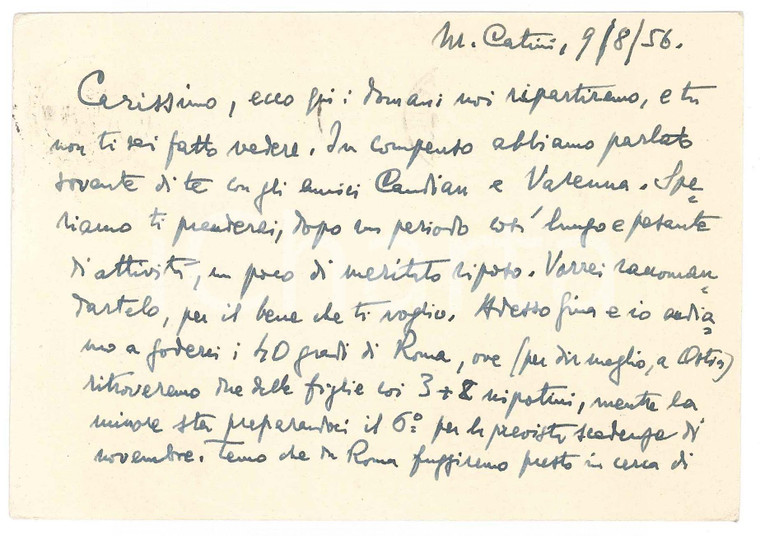 M. Catini, 9/8/56.
Carissimo, ecco qui: domani noi ripartiremo, e tu
non ti sei fatto vedere. In compenso abbiamo parlato
sovente di te con gli amici Candian e Varenna. Spe=
riamo ti prenderei, dopo un periodo così lungo e pesante
di attività, un poco di meritato riposo. Vorrei raccoman=
dartelo, per il bene che ti voglio. Adesso Gina e io andia=
mo a goderci i 40 gradi di Roma, ove (per dir meglio, a Ostia)
ritroveremo due delle figlie coi 3 + 2 nipotini, mentre la
minore sta preparandoci il 6º per la prevista scadenza di
novembre. Temo che da Roma fuggiremo presto in cerca di